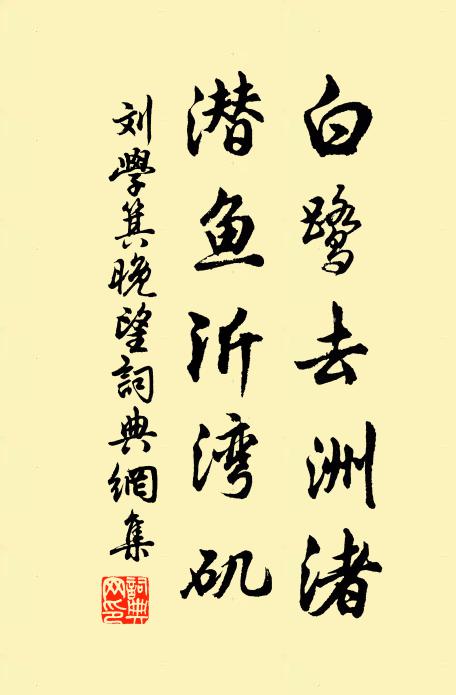 白鹭去洲渚
潜鱼沂湾矶
刘学箕晚望詞典網集
詞典网印